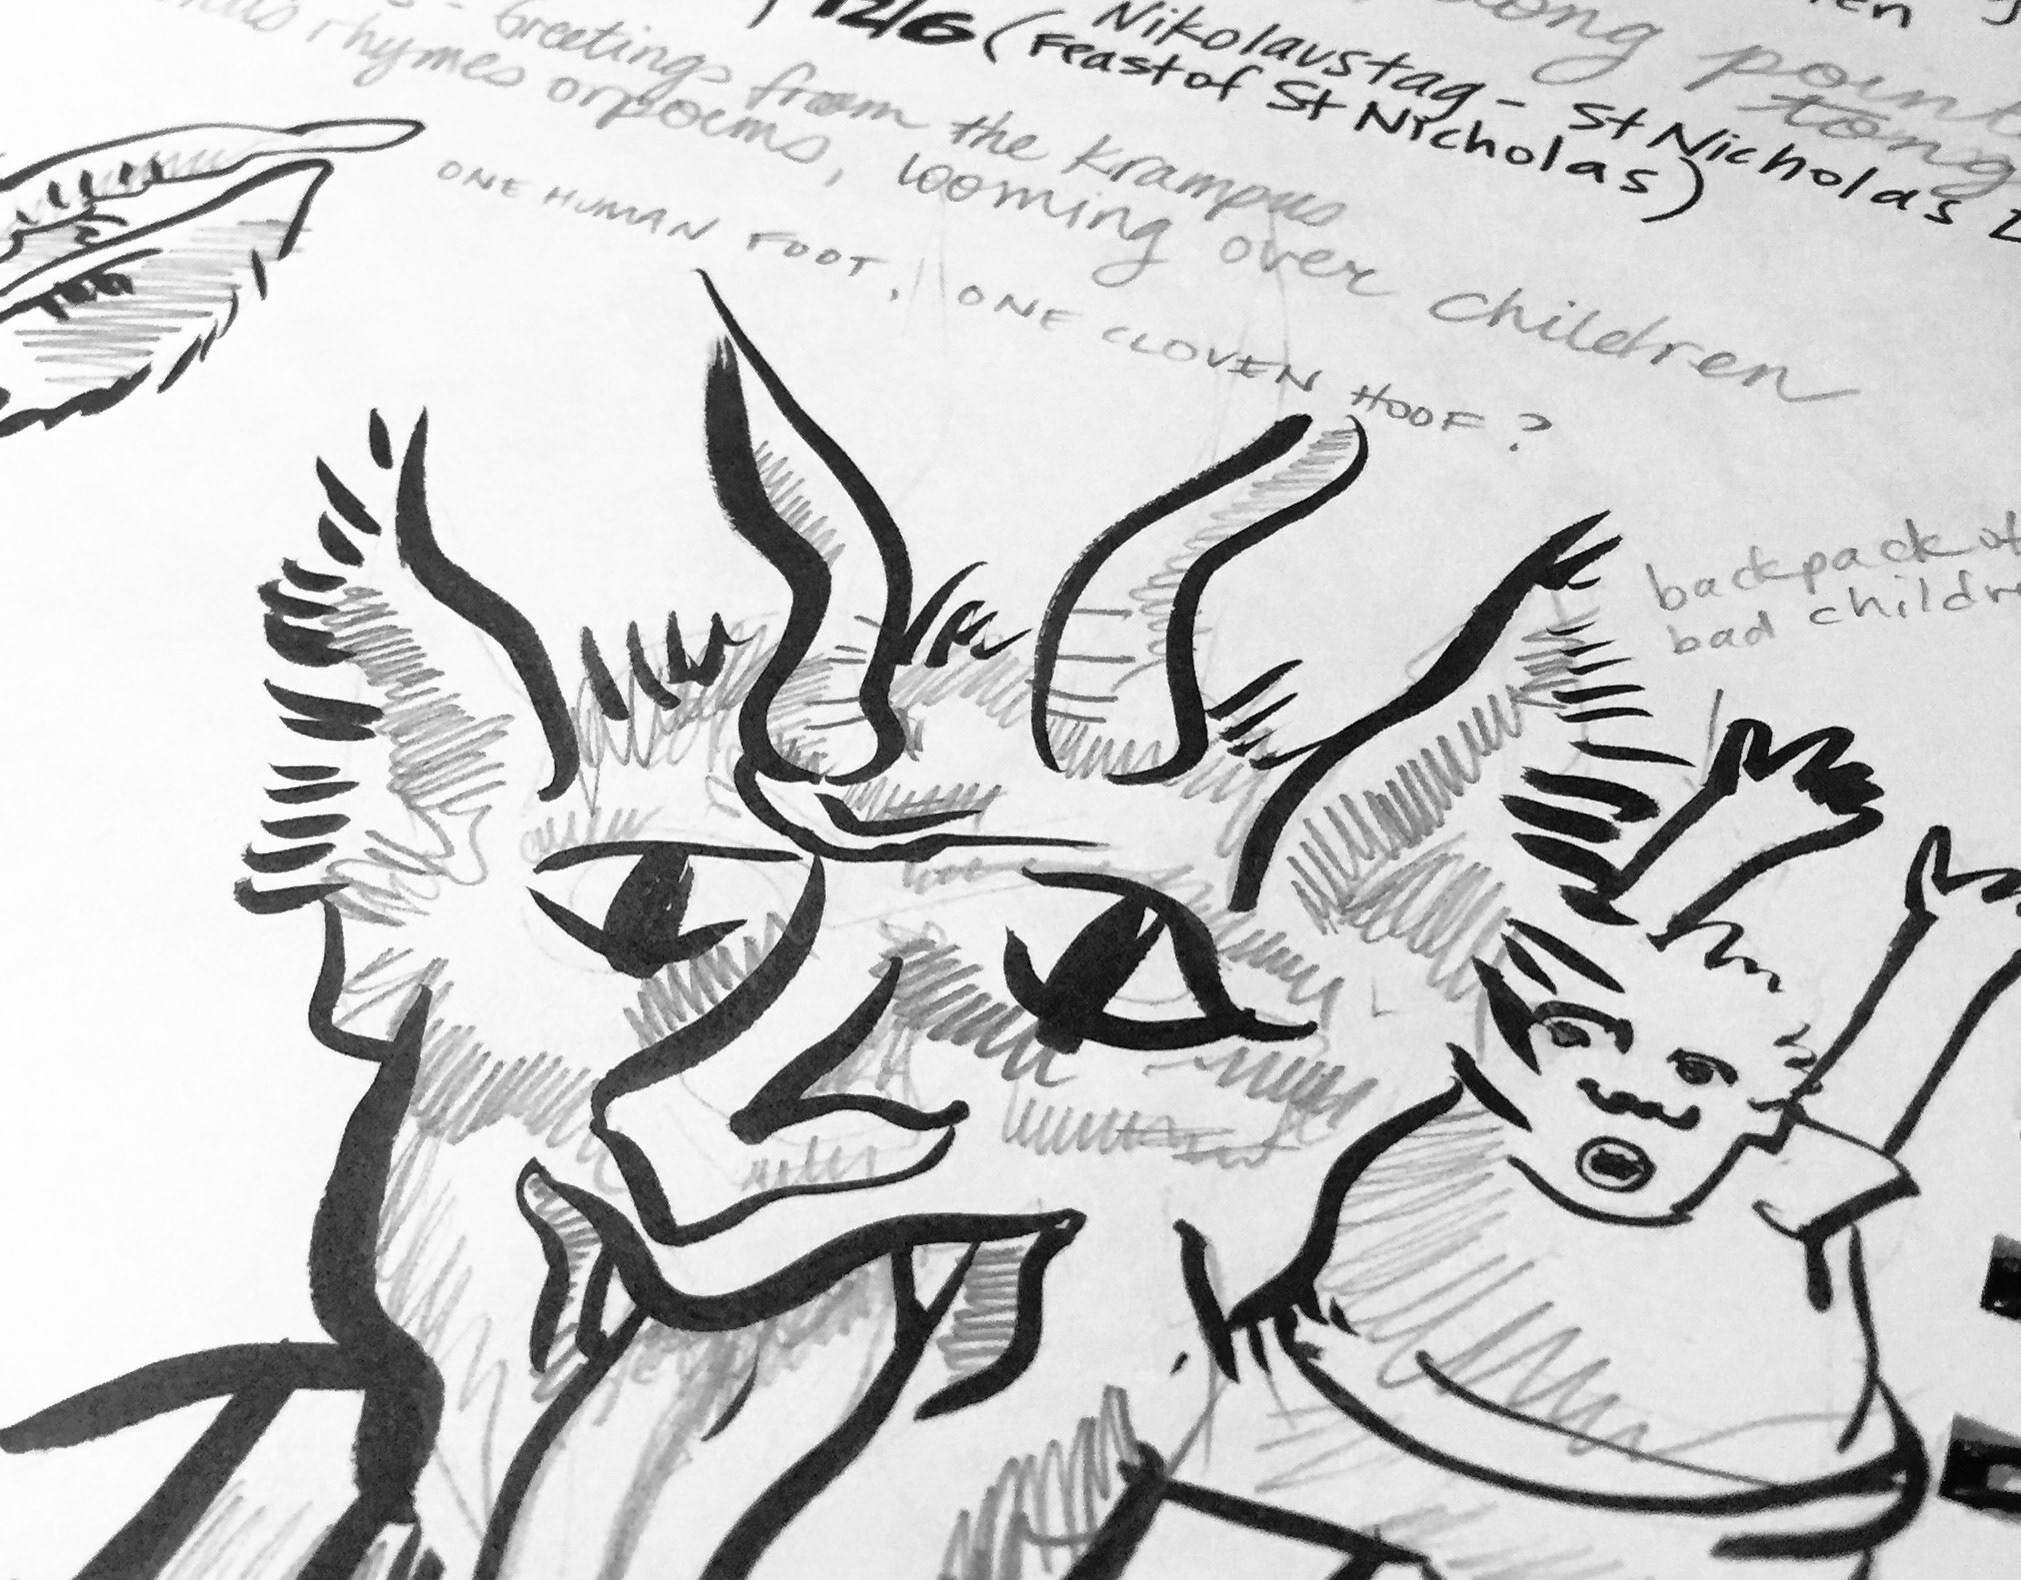 en
long point
tong
12/6 (Nikolaustag - St Nicholas
(Feast of St Nicholas)
- Greetings from the Krampus
rhymes or poems, looming over children
ONE HUMAN FOOT, ONE CLOVEN HOOF?
backpack of
bad childre